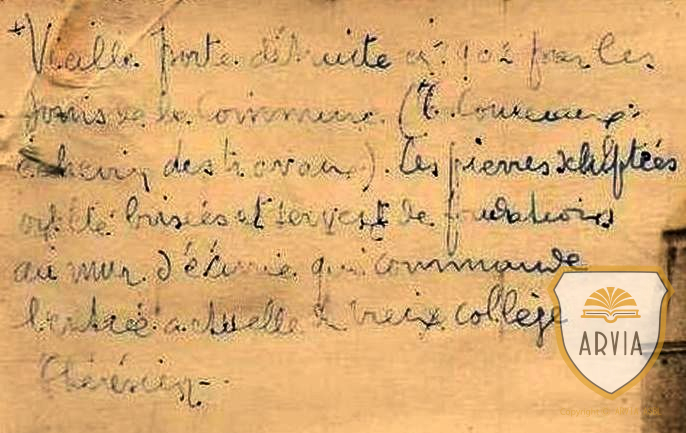 *Vieille porte détruite en 1902 par les
soins de la Commune (T. Coureaux
échevin des travaux). Les pierres sculptées
ont été brisées et servent de fondations
au mur d'écurie qui commande
l'entrée actuelle du vieux collège
Thérésien.
ARVIA